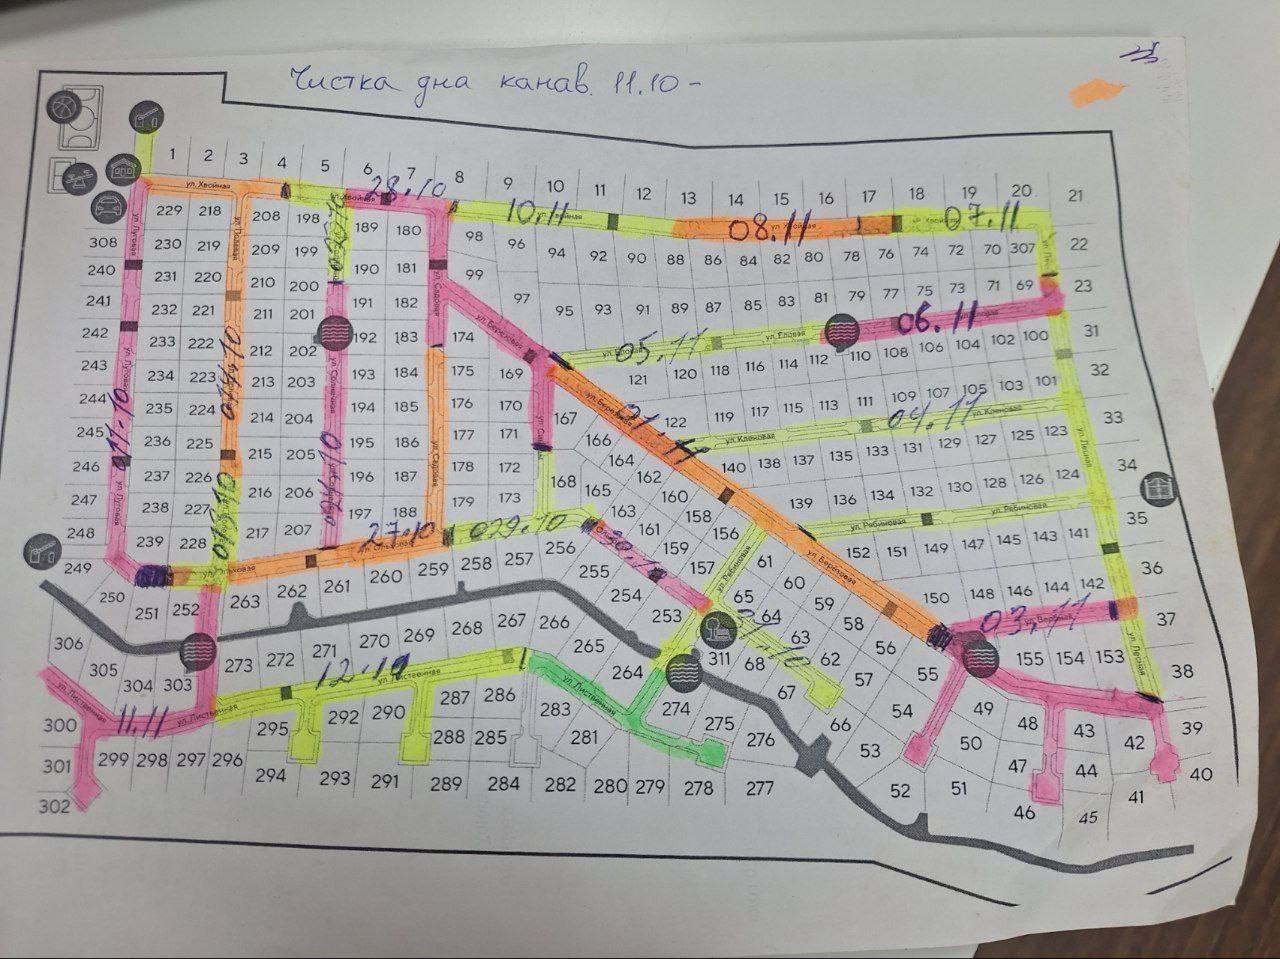 Чистка дна канав. 11.10 -
1 2 3 4 5 6 7 8 9 10 11 12 13 14 15 16 17 18 19 20 21
ул. Хвойная
28.10
10.11
08.11
07.11
229 218 208 198 189 180 98 96 94 92 90 88 86 84 82 80 78 76 74 72 70 307 22
308 230 219 209 199 190 181 99 97 95 93 91 89 87 85 83 81 79 77 75 73 71 69 23
240 231 220 210 200 191 182
241 232 221 211 201 192 183 174
06.11
05.11
ул. Еловая
242 233 222 212 202 193 184 175 169
121 120 118 116 114 112 110 108 106 104 102 100 31
243 234 223 213 203 194 185 176 170 167
122 119 117 115 113 111 109 107 105 103 101 32
ул. Берёзовая
ул. Луговая
ул. Садовая
ул. Солнечная
04.11
ул. Кленовая
244 235 224 214 204 195 186 177 171 166
140 138 137 135 133 131 129 127 125 123 33
245 236 225 215 205 196 187 178 172 168 164 162 160 158 156
139 136 134 132 130 128 126 124 34
246 237 226 216 206 197 188 179 173 165 163 161 159 157
ул. Рябиновая
247 238 227 217 207
152 151 149 147 145 143 141 35
248 239 228
27.10
029.10
249 250 251 252 263 262 261 260 259 258 257 256 255 254 253
61 60 59 58 56 55
150 148 146 144 142 36
03.11
37
ул. Лесная
306 305 304 303 273 272 271 270 269 268 267 266 265 264
65 64 63 62 311 68 67 66 57
155 154 153 38
12.10
ул. Лиственная
11.11
300 301 302 299 298 297 296 295 294 293 292 291 290 289 288 287 286 285 284 283 282 281 280 279 278 277 276 275 274
54 53 52 51 50 49 48 47 46 45 44 43 42 41 40 39